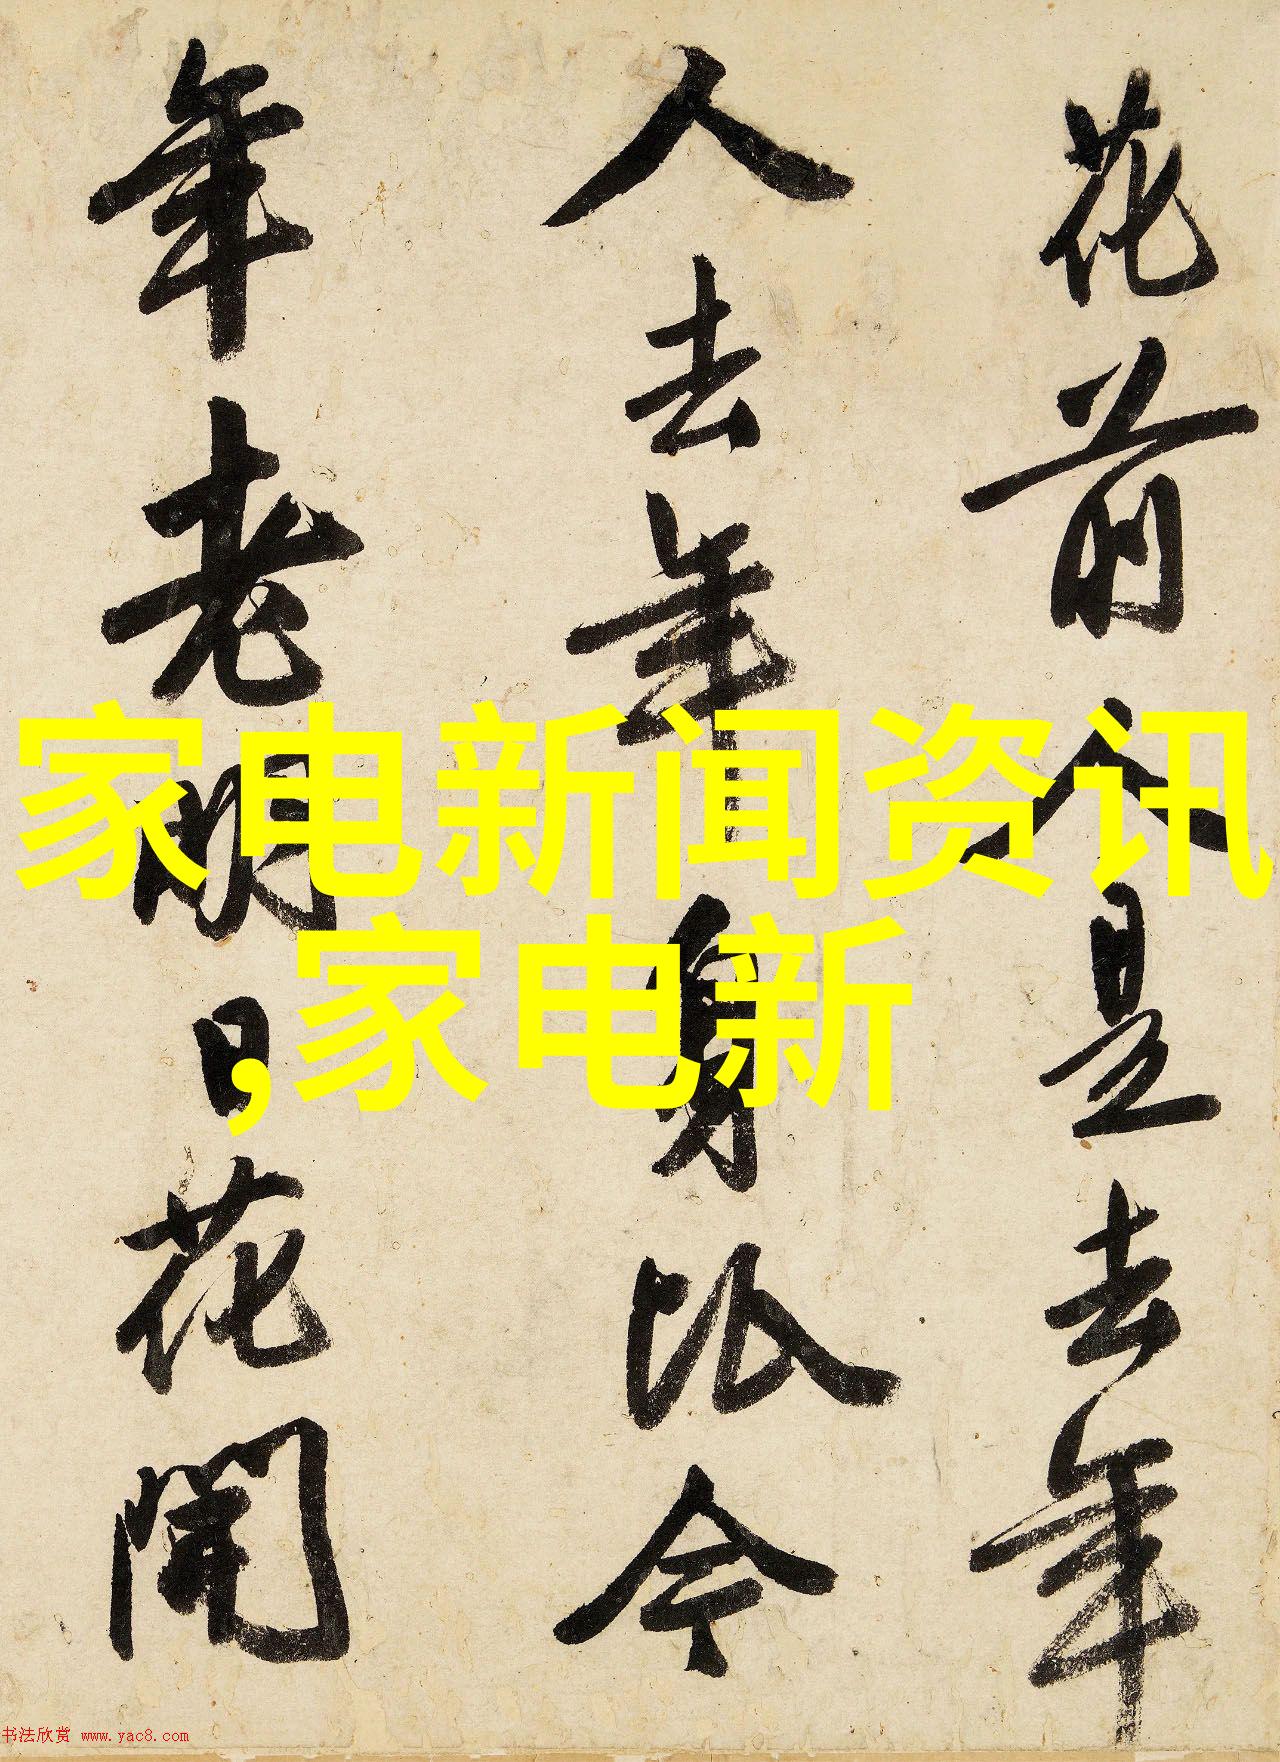 花前人是去年
人去年身比今
年老明日花開
家电新闻资讯
,家电新
书法欣赏 www.yac8.com